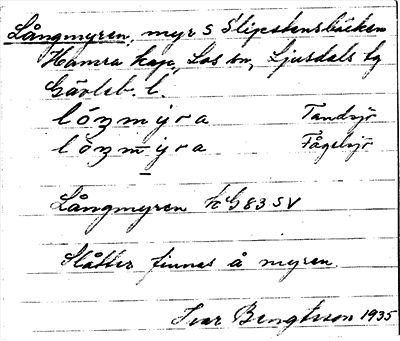 Långmyren, myr S Slipstensbäcken
Hamra kap., Los sn, Ljusdals tg
Gävleb. l.
lóŋmỳra Tandsjö
lóŋmỳra Fågelsjö
Långmyren K G 83 SV
Slåtter finnes å myren.
Ivar Bengtsson 1935